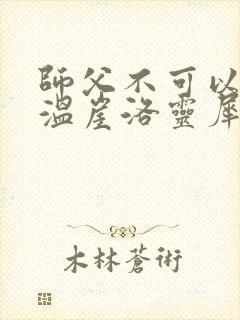 師父不可以
溫崖洛靈犀
木林蒼術